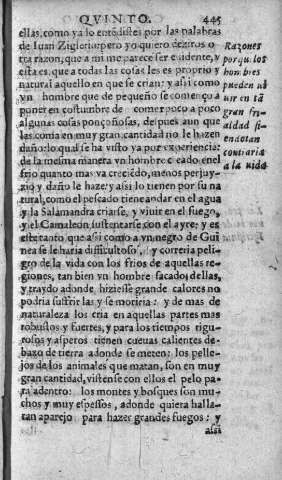 QVINTO. 445
ellas, como ya lo entẽdistes por las palabras
de Iuan Ziglero: pero yo quiero deziros o
tra razon, que a mi me parece ser euidente, y
esta es, que a todas las cosas les es proprio y
natural aquello en que se crian: y assi como
vn hombre que de pequeño se començo a
poner en costumbre de comer poco a poco
algunas cosas ponçoñosas, despues aun que
las coma en muy gran cantidad no le hazen
daño: lo qual se ha visto ya por experiencia:
de la mesma manera vn hombre criado enel
frio quanto mas va creciẽdo, menos perjuy-
zio y daño le haze: y assi lo tienen por su na
tural, como el pescado tiene andar en el agua
y la Salamandra criarse, y viuir en el fuego,
y el Camaleon sustentarse con el ayre: y es
esto tanto que assi como a vn negro de Gui
nea se le haria dificultoso, y correria peli-
gro de la vida con los frios de aquellas re-
giones, tan bien vn hombre sacado dellas,
y traydo adonde hiziesse grande calores no
podria suffrir las y se moriria: y de mas de
naturaleza los cria en aquellas partes mas
robustos y fuertes, y para los tiempos rigu-
rosos y asperos tienen cueuas calientes de-
baxo de tierra adonde se meten: los pelle-
jos de los animales que matan, son en muy
gran cantidad, vistense con ellos el pelo pa
ra adentro: los montes y bosques son mu-
chos y muy espessos, adonde quiera halla-
tan aparejo para hazer grandes fuegos: y
assi
Razones
porqu. los
hombres
pueden ui
uir en tã
gran fri-
aldad si-
endo tan
contraria
a la uida